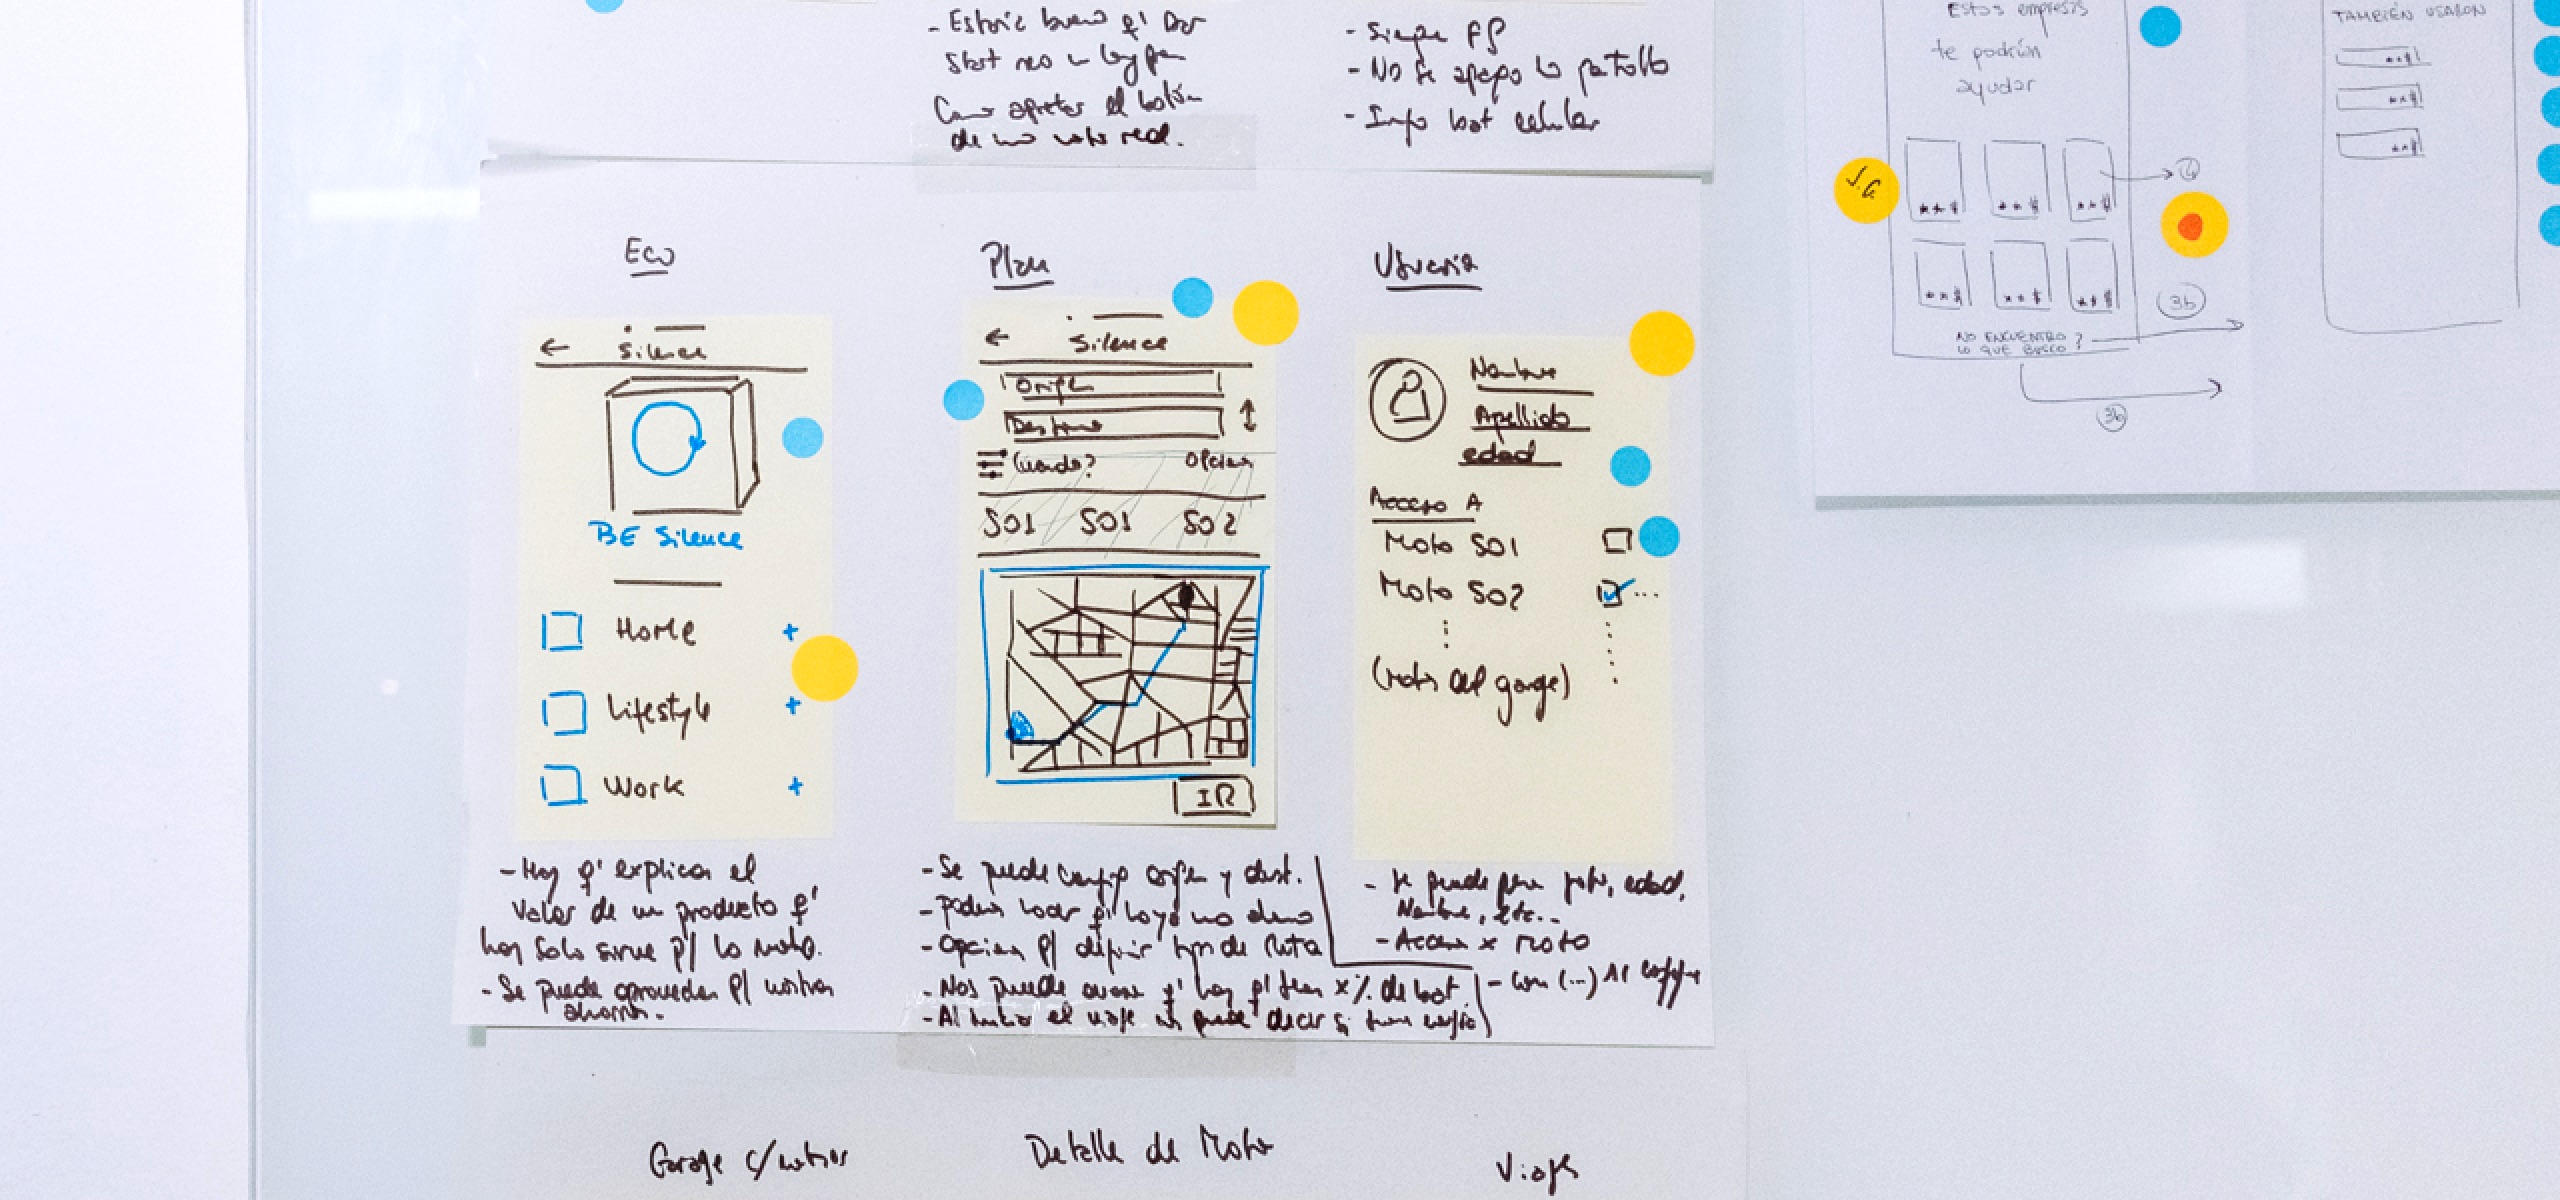 - Estaría bueno q' Dar
Start sea
Como apretar el botón
de una moto real.
- Siempre
- No se apaga la pantalla
- Info bat celular
Estas empresas
te podrían
ayudar
TAMBIÉN USARON
J.G.
3b
NO ENCUENTRO
LO QUE BUSCO ?
3b
Eco
← Silence
BE Silence
Home +
Lifestyle +
Work +
- Hay q' explicar el
Valor de un producto q'
hoy solo sirve p/ la moto.
- Se puede aprovechar p/ mostrar
ahorro.
Plan
← Silence
Origen
Destino
Cuando? Opcion
S01 S01 S02
IR
- Se puede config origen y dest.
- Podria hacer q' haya
- Opcion p/ definir tipo de Ruta
- Nos puede q' hay p/ x% de bat.
- Al el viaje puede decir si
Usuario
Nombre
Apellido
edad
Acceso A
Moto S01
Moto S02 ...
(motos del garage)
- Se puede foto, edad,
Nombre, etc..
- Acceso x Moto
- Con (...)
Garage c/motos
Detalle de Moto
Viaje